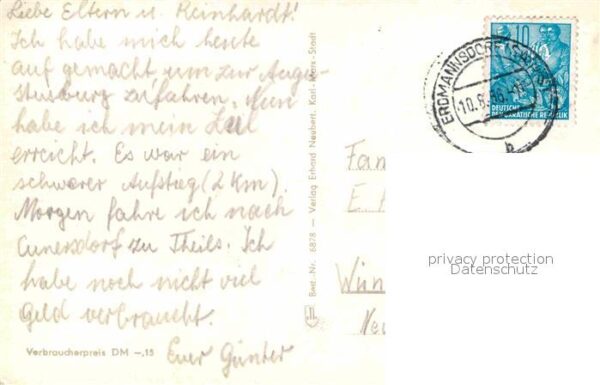 Liebe Eltern u. Reinhardt!
Ich habe mich heute
auf gemacht um zur Augu-
stusburg zu fahren. Nun
habe ich mein Ziel
erreicht. Es war ein
schwerer Aufstieg (2 km).
Morgen fahre ich nach
Cunersdorf zu Theils. Ich
habe noch nicht viel
Geld verbraucht.
Euer Günter
Verbraucherpreis DM -,15
Best.-Nr. 6878 — Verlag Erhard Neubert, Karl-Marx-Stadt
10
DEUTSCHE
DEMOKRATISCHE REPUBLIK
ERDMANNSDORF
10.8.
b
Fam
E
Wün
Neu
privacy protection
Datenschutz